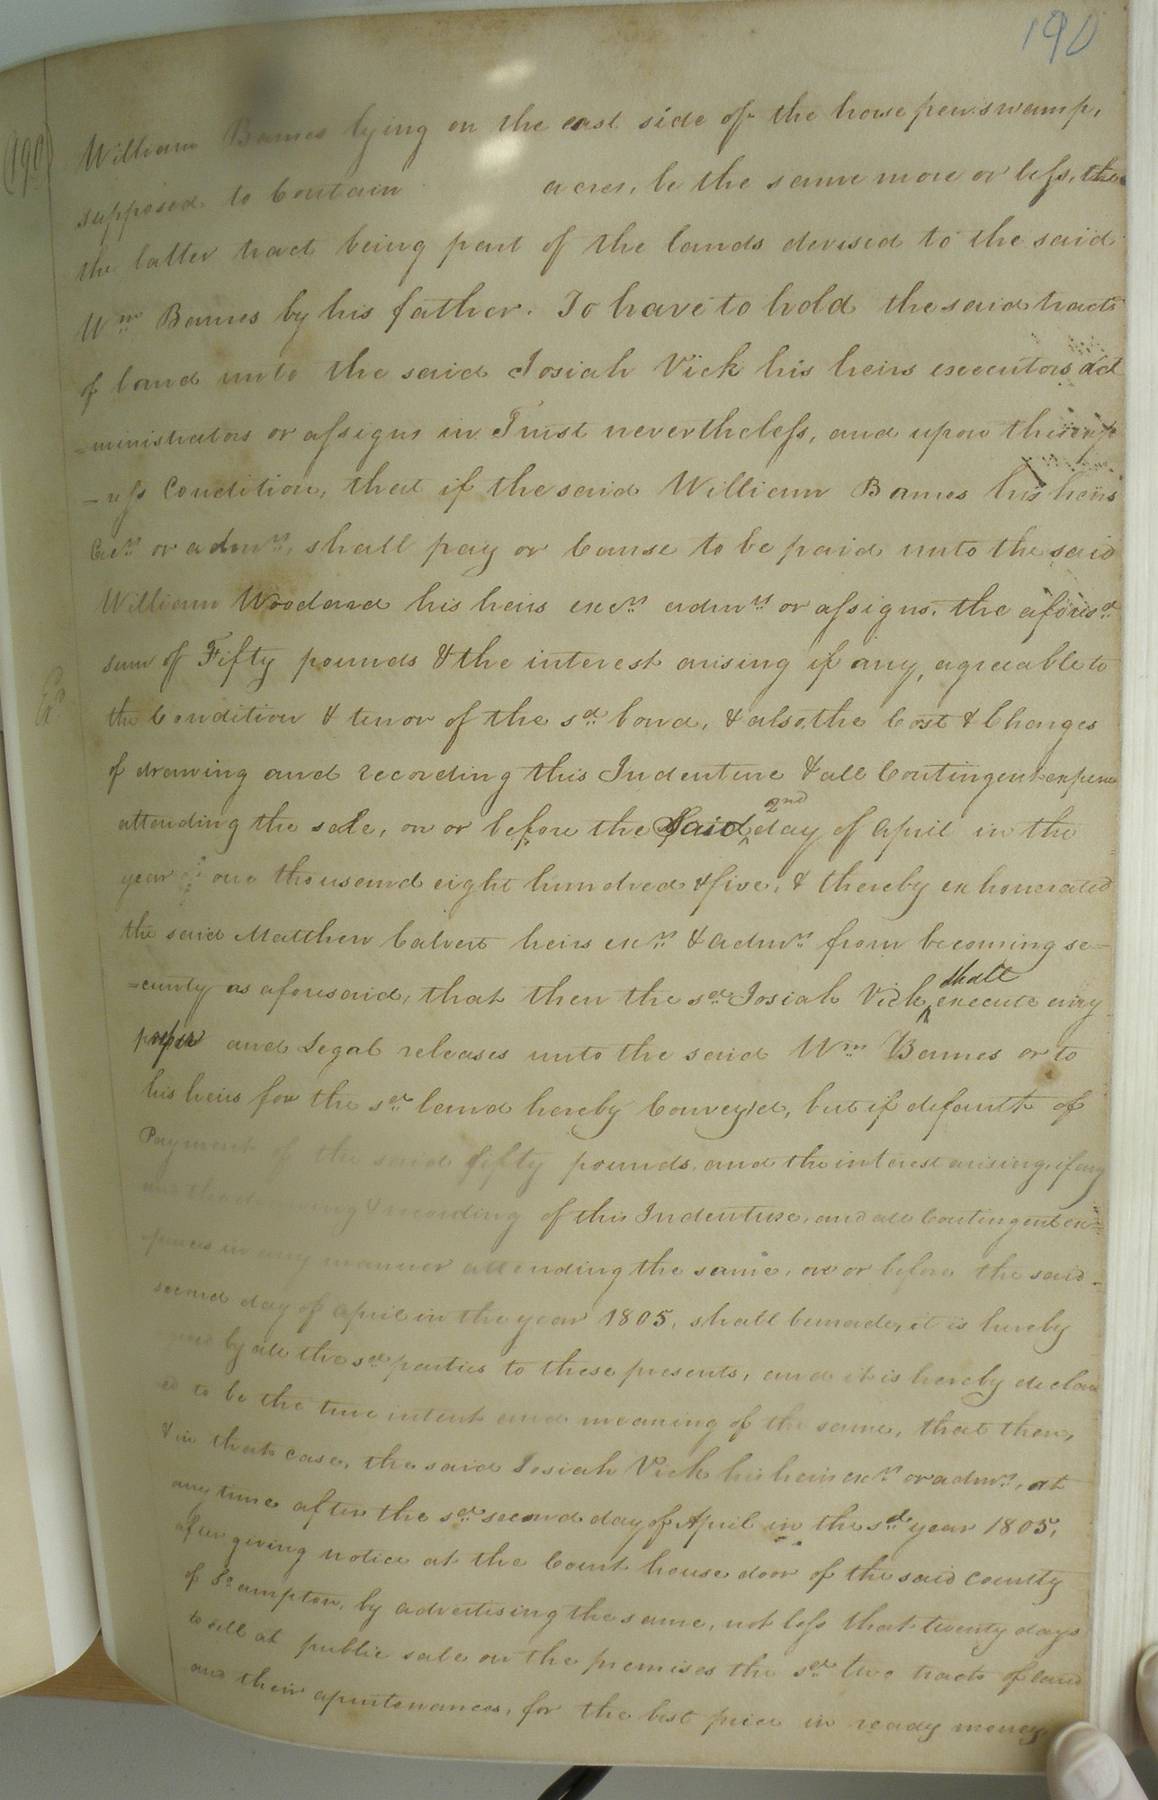 190
(190)
William Barnes lying on the east side of the horse pen swamp,
supposed to Contain acres, be the same more or less, the
the latter tract being part of the lands devised to the said
Wm Barnes by his father. To have to hold the said tracts
of land unto the said Josiah Vick his heirs executors ad
=ministrators or assigns in Trust nevertheless, and upon this exp
-ress Condition, that if the said William Barnes his heirs
Exrs or admrs, shall pay or Cause to be paid unto the said
William Woodard his heirs exrs admrs or assigns, the aforesd
sum of Fifty pounds & the interest arising if any, agreeable to
the Condition & tenor of the sd bond, & also, the Cost & Charges
of drawing and recording this Indenture & all Contingent expence
attending the sale, on or before the said 2nd day of April in the
year of one thousand eight hundred & five, & thereby exhonerated
the said Matthew Calvert heirs exrs & admrs from becoming se=
=curity as aforesaid, that then the sd Josiah Vick shall execute any
proper and Legal releases unto the said Wm Barnes or to
his heirs for the sd land hereby Convey'd, but if default of
Payment of the said fifty pounds, and the interest arising, if any
and the drawing & recording of this Indenture, and all Contingent ex=
=pences in any manner attending the same, on or before the said
second day of April in the year 1805, shall be made, it is hereby
by all the sd parties to these presents, and it is hereby declar
ed to be the true intent and meaning of the same, that then,
& in that case, the said Josiah Vick his heirs exrs or admrs, at
any time after the sd second day of April in the sd year 1805,
after giving notice at the Court house door of the said County
of So ampton, by advertising the same, not less that twenty days
to sell at public sale on the premises the sd two tracts of land
and their apurtenances, for the best price in ready money